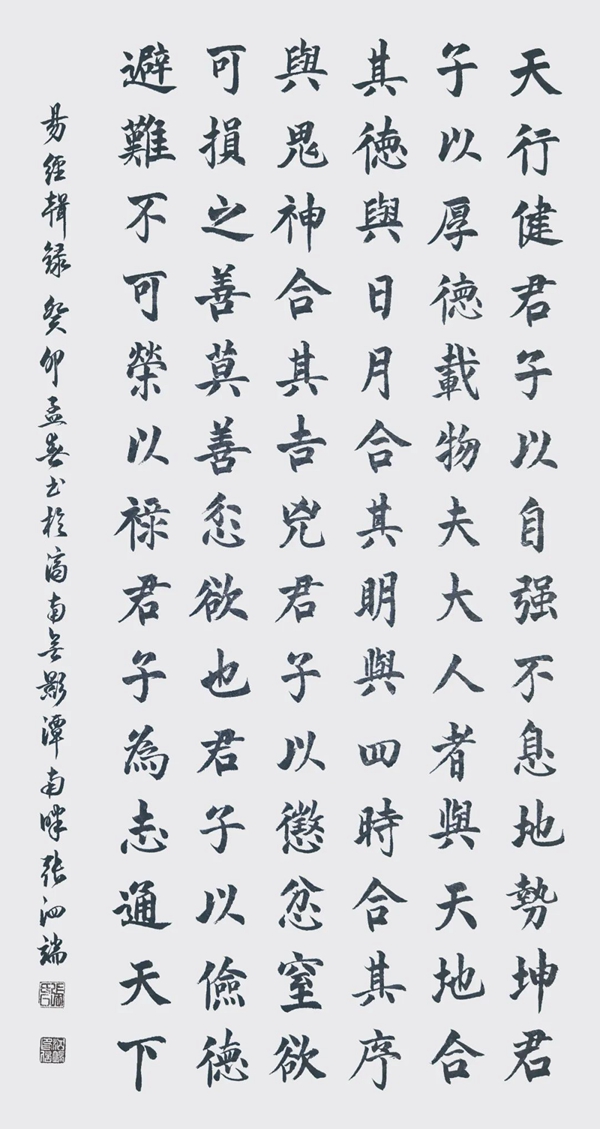 天行健君子以自强不息地勢坤君
子以厚德載物夫大人者與天地合
其德與日月合其明與四時合其序
與鬼神合其吉兇君子以懲忿窒欲
可損之善莫善忿欲也君子以儉德
避難不可榮以禄君子為志通天下
易經輯録癸卯孟春书於濟南無影潭南畔張泗端